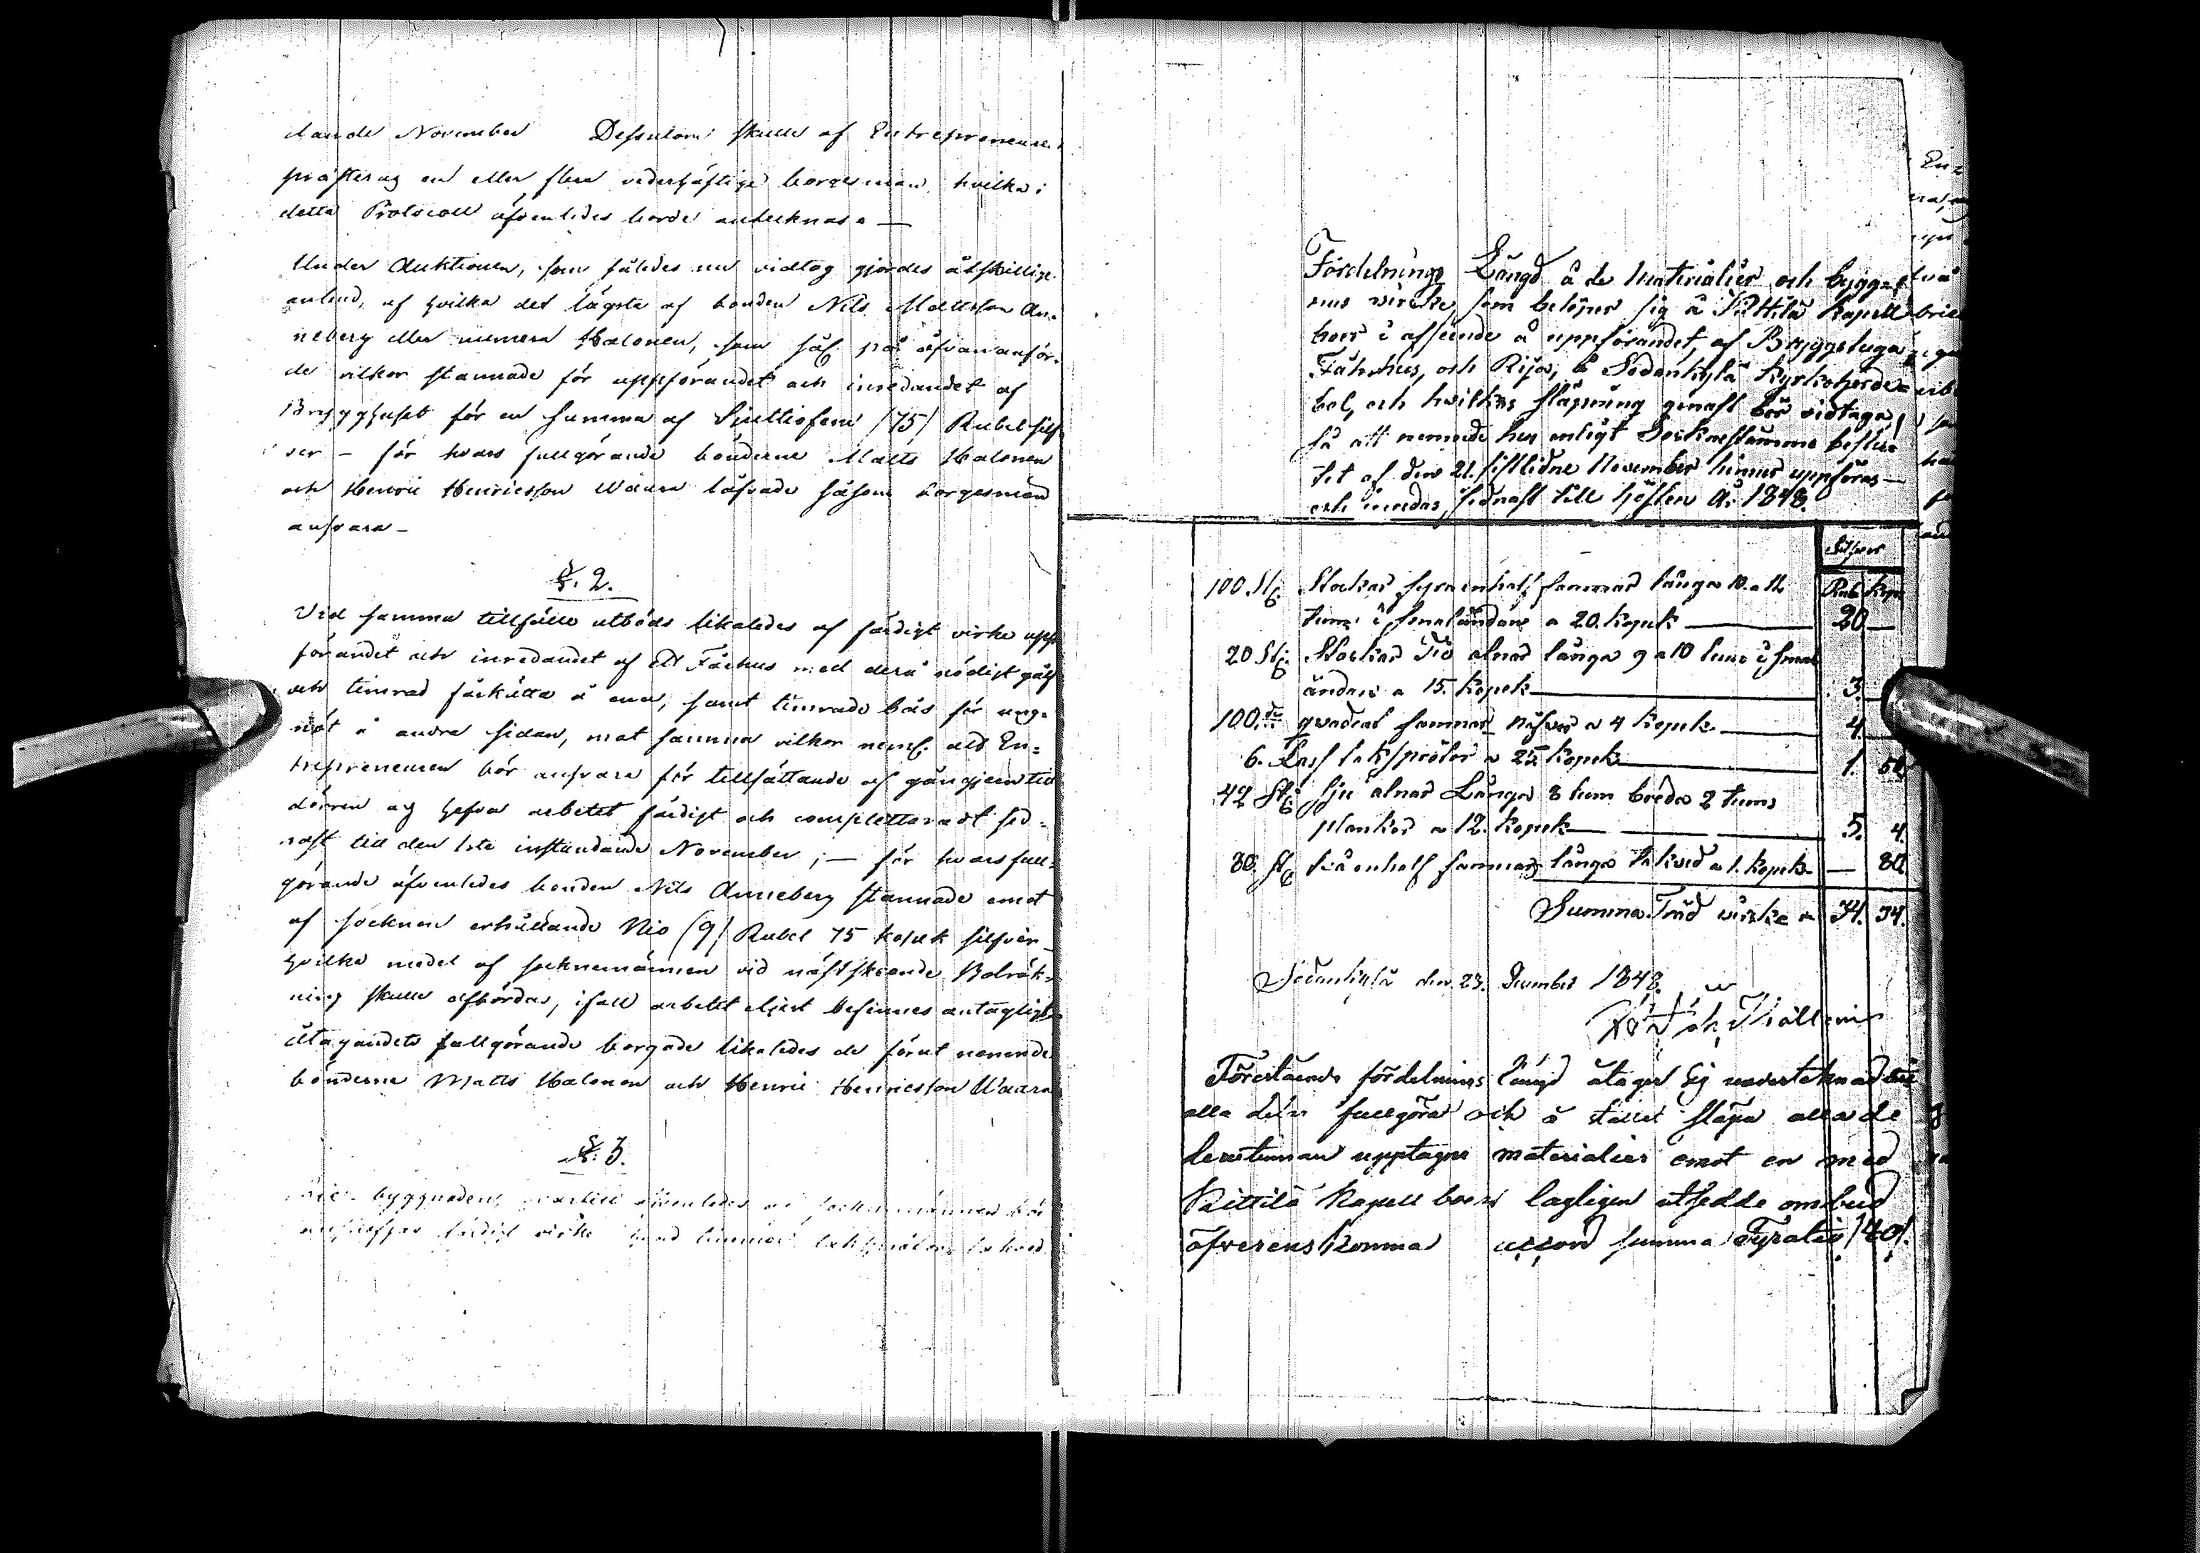 dande November Dessutom skulle af Entrepreneuren
præsteras en eller flera vederhäftige borgesmän, hvilka i
detta Protocoll äfvenledes borde antecknas. —
Under Auktionen, som således nu vidtog gjordes åtskillige
anbud, af hvilka det lägsta af bonden Nils Mattsson An-
neberg eller numera Halonen, som på ofvananför-
de vilkor stannade för uppförandet och inredandet af
Brygghuset för en summa af Sjuttiofem (75) Rubel silf
ver – för hvars fullgörande bönderne Matts Halonen
och Henric Henricsson Waara låfvade såsom borgesmän
ansvara –
§. 2.
Vid samma tillfälle utböds likaledes af färdigt virke upp
förandet och inredandet af Ett Fähus med dera nödigt golf
och timrad fårkätta å ena, samt timrade bås för ung-
nöt å andra sidan, mot samma vilkor neml. att En=
trepreneuren bör ansvara för tillsättande af gångjern till
dörren og hafva arbetet färdigt och completteradt sed-
nast till den 1sta instundande November; — för hvars full-
görande äfvenledes bonden Nils Anneberg stannade emot
af socknen erhållande Nio (9) Rubel 75 kopek silfver
hvilka medel af socknemännen vid nästskeende Bolräk-
ning skulle afbördas, ifall arbetet eljest befinnes antagligt
Åtagandets fullgörande borgade likaledes de förut nemnde
bönderne Matts Halonen och Henric Henricsson Waara
§. 3.
byggnaden, äfvenledes socknemännen bör
anskaffas färdigt virke
Fördelnings Längd å de materialier och byggna
som belöper sig å Kittilä Kapell
boer i afseende å uppförandet, af Bryggstuga
Fähus, och Rijan, å Sodankylä Kyrkoherde=
bol, och hvilkas släpning genast bör vidtaga,
så att nemnde hus enligt Sockne stämmo beslu
tet af den 21. sistlidne November hinner uppföras —
och inredas, sednast till hösten Ar 1848.
Silfver
Rub. kop.
100. St. Stockar fyra enhalf famnar långa 10. a 12
tum i smaländan a 20. kopek — 20 —
20 St. Stockar Tio alnar långa 9 a 10 tum i smal
ändan a 15. kopek — 3.
100. St. quadrat famnar näfver a 4 kopek — 4
6. Lass taksprötor a 25 kopek — 1. 50
42 St. sju alnar Långa 8 tum breda 2 tums
plankor a 12. kopek — 5. 4.
80. St. två enhalf famnar långa takved a 1. kopek — — 80
Summa Träd virke a 34. 34.
Sodankylä den 23. December 1848.
Förestående fördelnings längd åtager sig undertecknad att
alla delar fullgöra och å stället släpa alla de
deruti upptagne materialier emot en med
Kittilä Kapell boers lagligen utsedde ombud
öfverenskomne accord summa Fyratio (40).